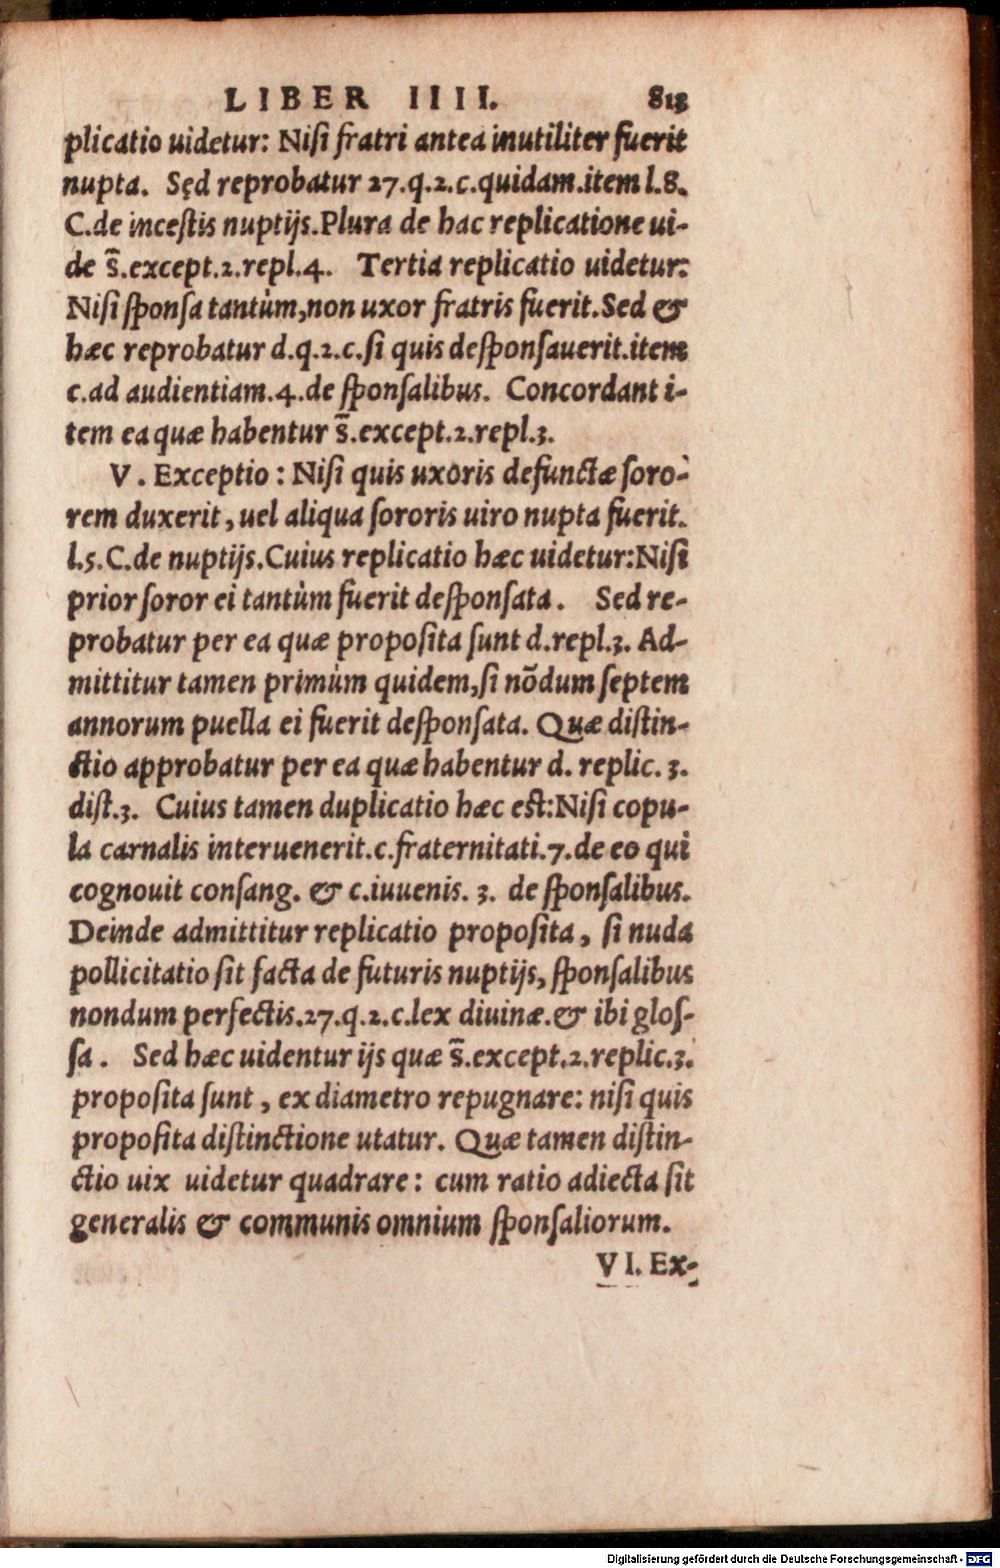 LIBER IIII. 813
plicatio uidetur: Niſi fratri antea inutiliter fuerit
nupta. Sęd reprobatur 27.q.2.c.quidam.item l.8.
C.de inceſtis nuptijs.Plura de hac replicatione ui-
de s̃.except.2.repl.4. Tertia replicatio uidetur:
Niſi ſponſa tantùm,non uxor fratris fuerit.Sed &
hæc reprobatur d.q.2.c.ſi quis deſponſauerit.item
c.ad audientiam.4.de ſponſalibus. Concordant i-
tem ea quæ habentur s̃.except.2.repl.3.
V. Exceptio: Niſi quis uxoris defunctæ ſoro-
rem duxerit, uel aliqua ſororis uiro nupta fuerit.
l.5.C.de nuptijs.Cuius replicatio hæc uidetur:Niſi
prior ſoror ei tantùm fuerit deſponſata. Sed re-
probatur per ea quæ propoſita ſunt d.repl.3. Ad-
mittitur tamen primùm quidem,ſi nõdum ſeptem
annorum puella ei fuerit deſponſata. Quæ diſtin-
ctio approbatur per ea quæ habentur d. replic. 3.
diſt.3. Cuius tamen duplicatio hæc eſt:Niſi copu-
la carnalis interuenerit.c.fraternitati.7.de eo qui
cognouit conſang. & c.iuuenis. 3. de ſponſalibus.
Deinde admittitur replicatio propoſita, ſi nuda
pollicitatio ſit facta de futuris nuptijs, ſponſalibus
nondum perfectis.27.q.2.c.lex diuinæ.& ibi gloſ-
ſa. Sed hæc uidentur ijs quæ s̃.except.2.replic.3.
propoſita ſunt, ex diametro repugnare: niſi quis
propoſita diſtinctione utatur. Quæ tamen diſtin-
ctio uix uidetur quadrare: cum ratio adiecta ſit
generalis & communis omnium ſponſaliorum.
VI. Ex-
Digitalisierung gefördert durch die Deutsche Forschungsgemeinschaft - DFG